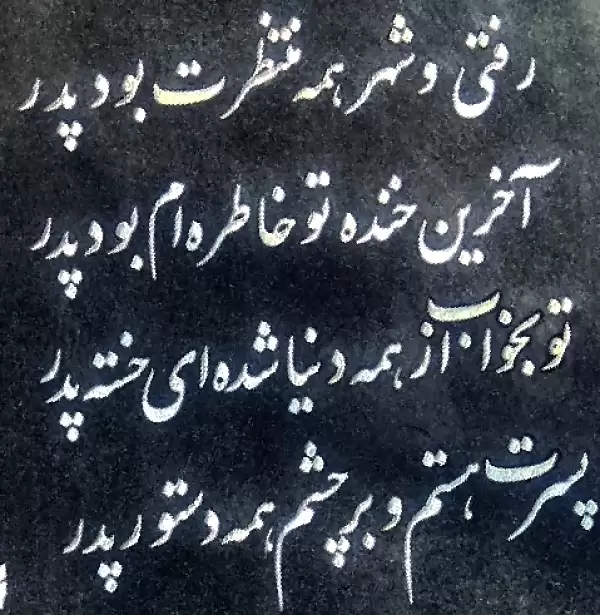 رفتی و شهر همه منتظرت بود پدر
آخرین خنده تو خاطره ام بود پدر
تو بخواب از همه دنیا شده ای خسته پدر
پسرت هستم و بر چشم همه دستور پدر